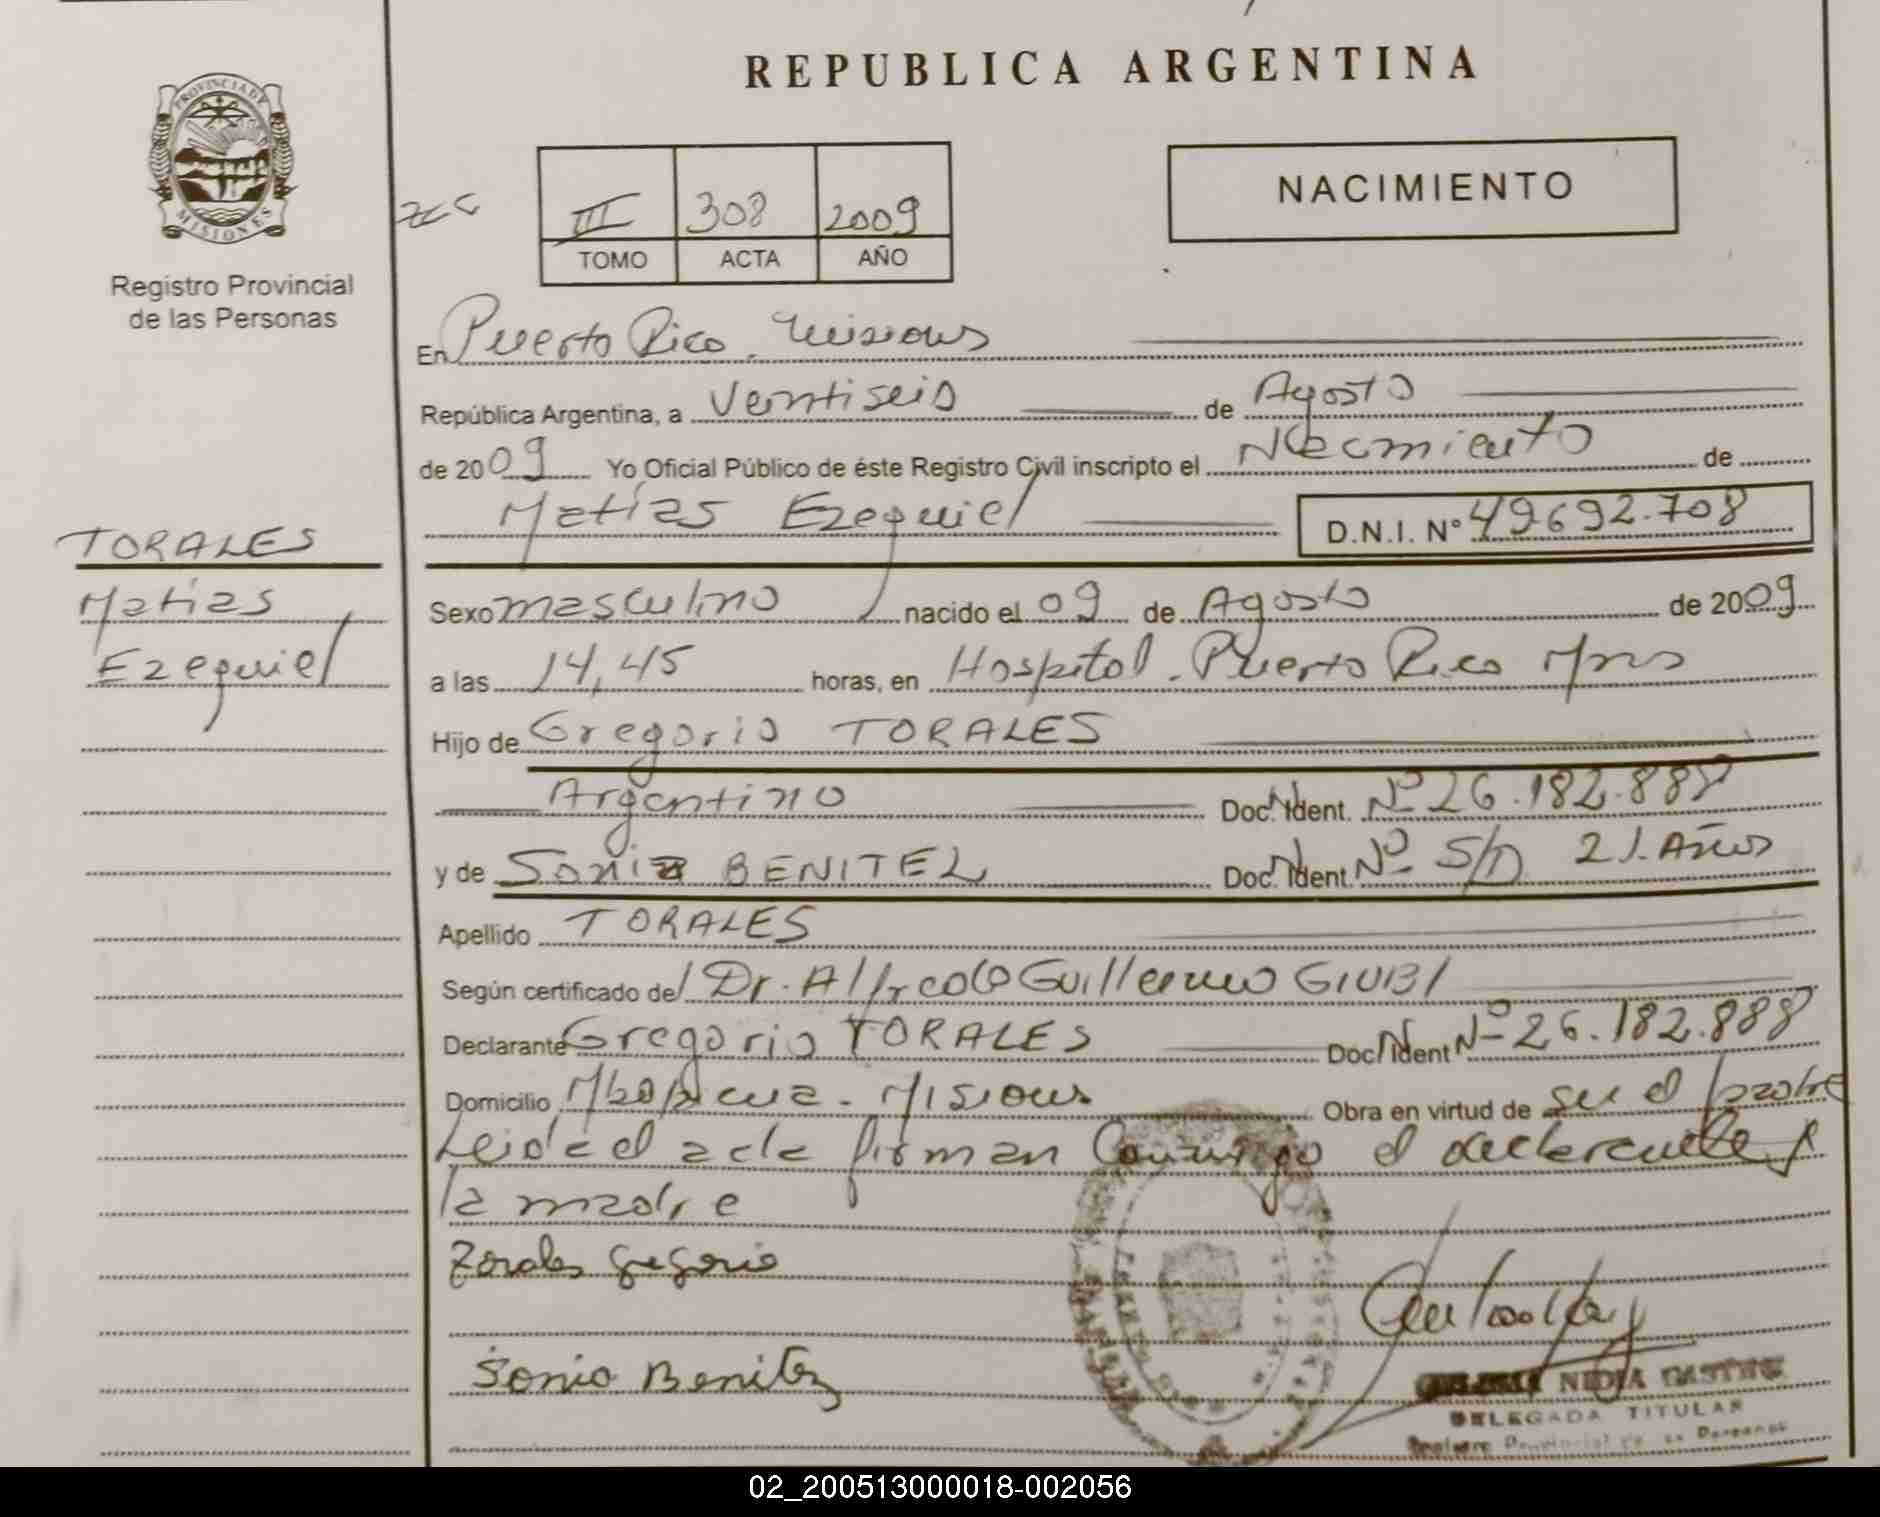 REPUBLICA ARGENTINA
PROVINCIA DE
MISIONES
Registro Provincial
de las Personas
III 308 2009
TOMO ACTA AÑO
NACIMIENTO
En Puerto Rico, Misiones
República Argentina, a Veintiseis de Agosto
de 2009 Yo Oficial Público de éste Registro Civil inscripto el Nacimiento de
Matías Ezequiel D.N.I. Nº 49.692.708
TORALES
Matías
Ezequiel
Sexo masculino nacido el 09 de Agosto de 2009
a las 14,45 horas, en Hospital - Puerto Rico Mnes
Hijo de Gregorio TORALES
Argentino Doc. Ident. Nº 26.182.888
y de Sonia BENITEZ Doc. Ident. Nº S/D 21. Años
Apellido TORALES
Según certificado del Dr. Alfredo Guillermo GIUBI
Declarante Gregorio TORALES Doc. Ident Nº 26.182.888
Domicilio Mbopicua - Misiones Obra en virtud de ser el padre
Leida el acta firman Conmigo el declarante y
la madre
Torales Gregorio
Sonia Benitez
NIDIA CASTRO
DELEGADA TITULAR
Registro Provincial de las Personas
02_200513000018-002056